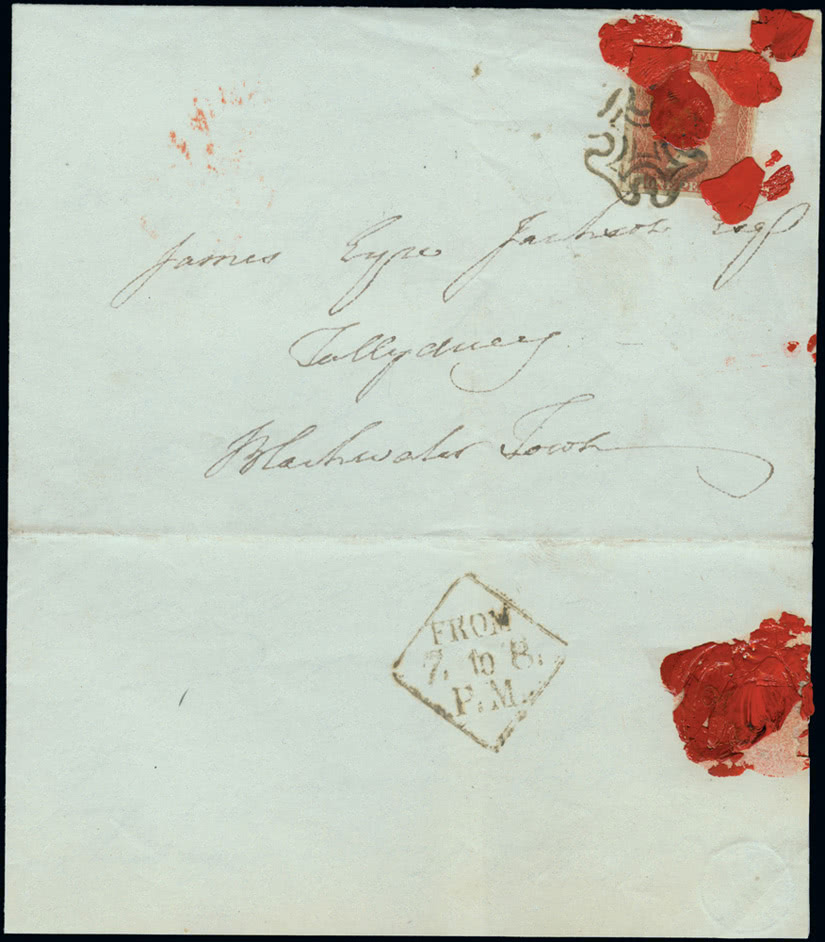 James Eyre Jackson Esq
Tullydowey
Blackwater Town
FROM
7. to 8.
P.M.